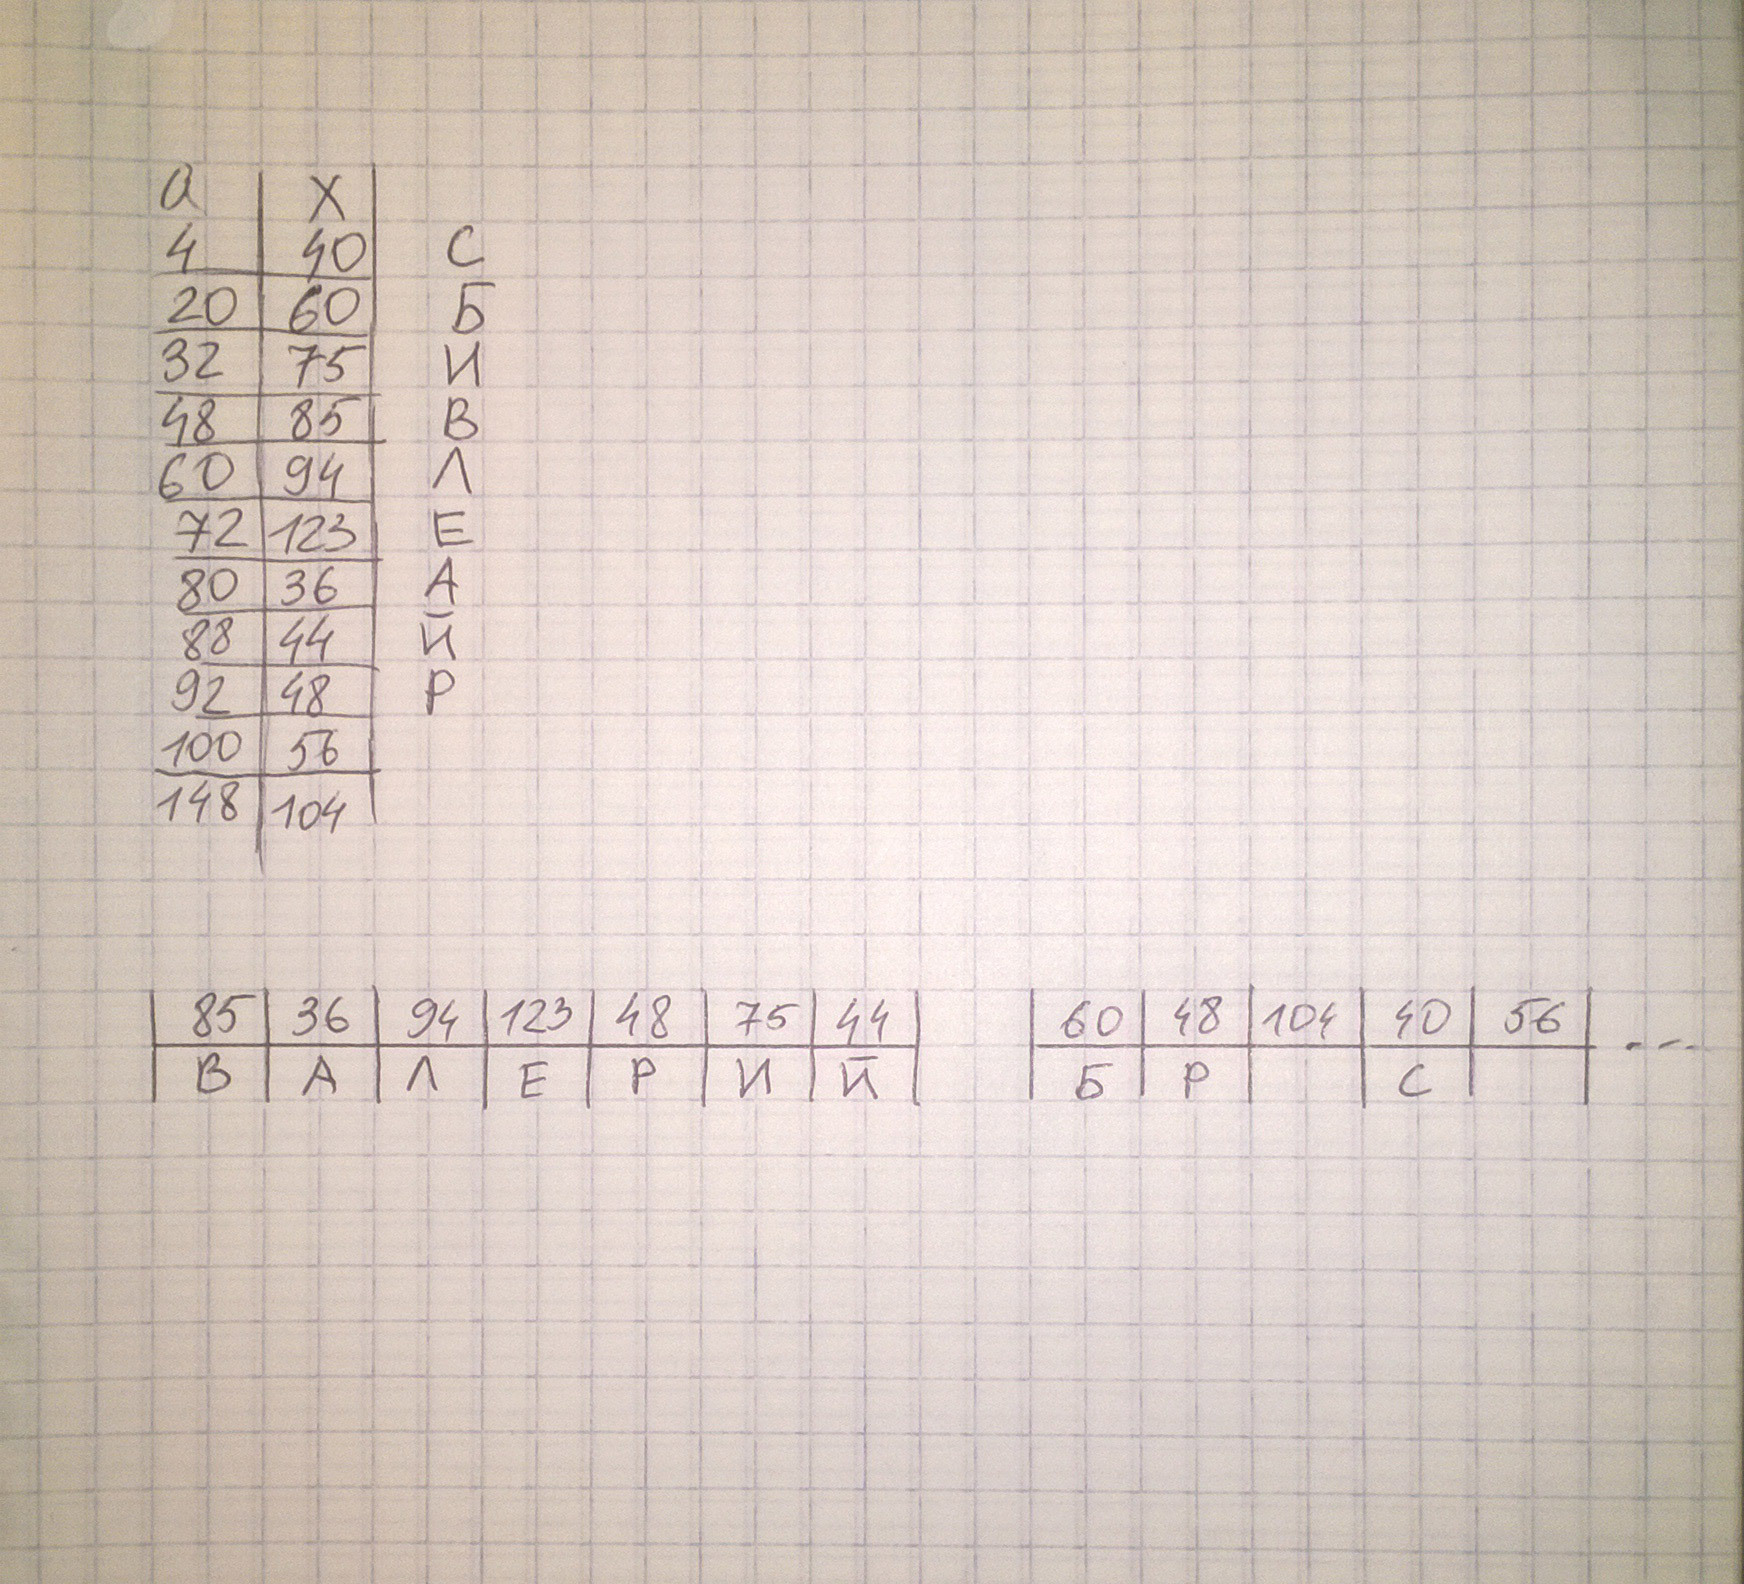 а X
4 40 С
20 60 Б
32 75 И
48 85 В
60 94 Л
72 123 Е
80 36 А
88 44 Й
92 48 Р
100 56
148 104
85 36 94 123 48 75 44 60 48 104 40 56
В А Л Е Р И Й Б Р С ---